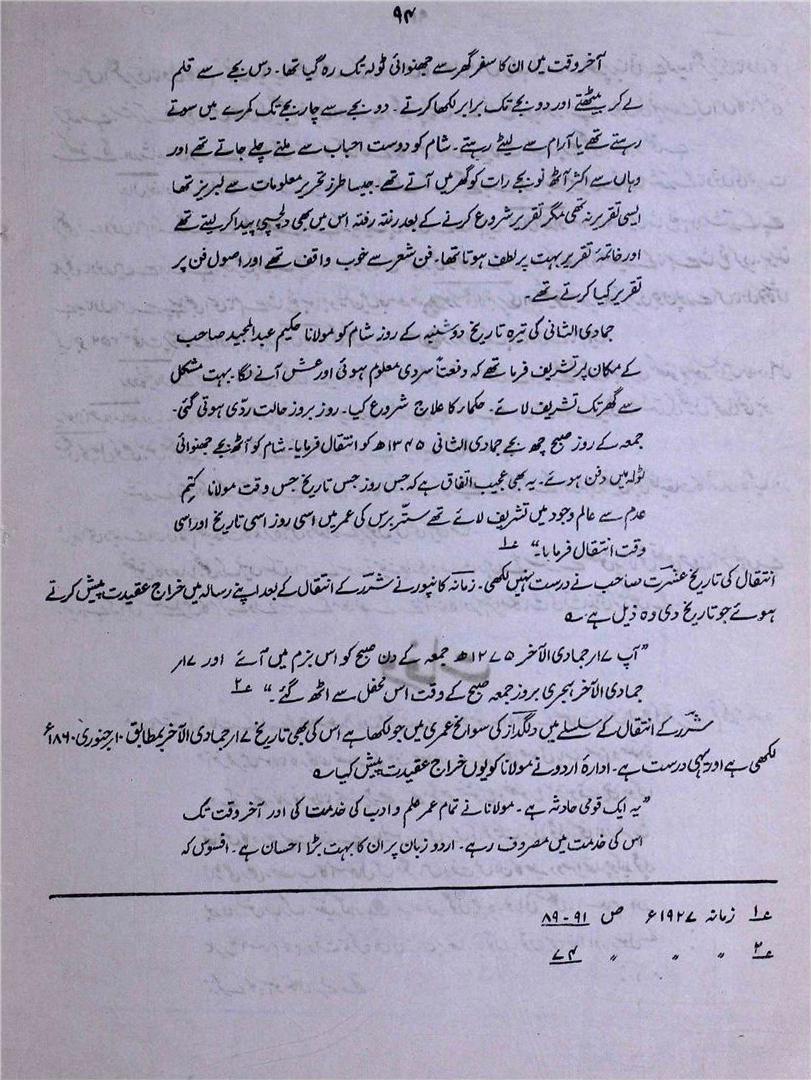 ۹۴
آخر وقت میں ان کا سفر گھر سے جھنوائی ٹولہ تک رہ گیا تھا۔ دس بجے سے قلم
لے کر بیٹھتے اور دو بجے تک برابر لکھا کرتے۔ دو بجے سے چار بجے تک کمرے میں سوتے
رہتے تھے یا آرام سے لیٹے رہتے۔ شام کو دوست احباب سے ملنے چلے جاتے تھے اور
وہاں سے اکثر آٹھ نو بجے رات کو گھر میں آتے تھے۔ جیسا طرز تحریر معلومات سے لبریز تھا
ایسی تقریر نہ تھی مگر تقریر شروع کرنے کے بعد رفتہ رفتہ اس میں بھی دلچسپی پیدا کر لیتے تھے
اور خاتمۂ تقریر بہت پر لطف ہوتا تھا۔ فن شعر سے خوب واقف تھے اور اصول فن پر
تقریر کیا کرتے تھے۔
جمادی الثانی کی تیرہ تاریخ دو شنبہ کے روز شام کو مولانا حکیم عبدالمجید صاحب
کے مکان پر تشریف فرما تھے کہ دفعتاً سردی معلوم ہوئی اور غش آنے لگا۔ بہت مشکل
سے گھر تک تشریف لائے۔ حکمار کا علاج شروع کیا۔ روز بروز حالت ردّی ہوتی گئی۔
جمعہ کے روز صبح چھ بجے جمادی الثانی ۱۳۴۵ھ کو انتقال فرمایا۔ شام کو آٹھ بجے جھنوائی
ٹولہ میں دفن ہوئے۔ یہ بھی عجیب اتفاق ہے کہ جس روز جس تاریخ جس وقت مولانا کتم
عدم سے عالم وجود میں تشریف لائے تھے ستّر برس کی عمر میں اسی روز اسی تاریخ اور اسی
وقت انتقال فرمایا۔" ؏۱
انتقال کی تاریخ عشرت صاحب نے درست نہیں لکھی۔ زمانہ کانپور نے شرر کے انتقال کے بعد اپنے رسالہ میں خراج عقیدت پیش کرتے
ہوئے جو تاریخ دی وہ ذیل ہے:۔
"آپ ۱۷ر جمادی الآخر ۱۲۷۵ھ جمعہ کے دن صبح کو اس بزم میں آئے اور ۱۷ر
جمادی الآخر ہجری بروز جمعہ صبح کے وقت اس محفل سے اٹھ گئے۔" ؏۲
شرر کے انتقال کے سلسلے میں دلگداز کی سوانح عمری میں جو لکھا ہے اس کی بھی تاریخ ۱۷ر جمادی الآخر بمطابق ۱۰ر جنوری ۱۸۶۰ء
لکھی ہے اور یہی درست ہے۔ ادارۂ اردو نے مولانا کو یوں خراج عقیدت پیش کیا:۔
"یہ ایک قومی حادثہ ہے۔ مولانا نے تمام عمر علم و ادب کی خدمت کی اور آخر وقت تک
اس کی خدمت میں مصروف رہے۔ اردو زبان پر ان کا بہت بڑا احسان ہے۔ افسوس کہ
؏۱ زمانہ ۱۹۲۷ء ص ۹۱-۸۹
؏۲ " " " ۷۴